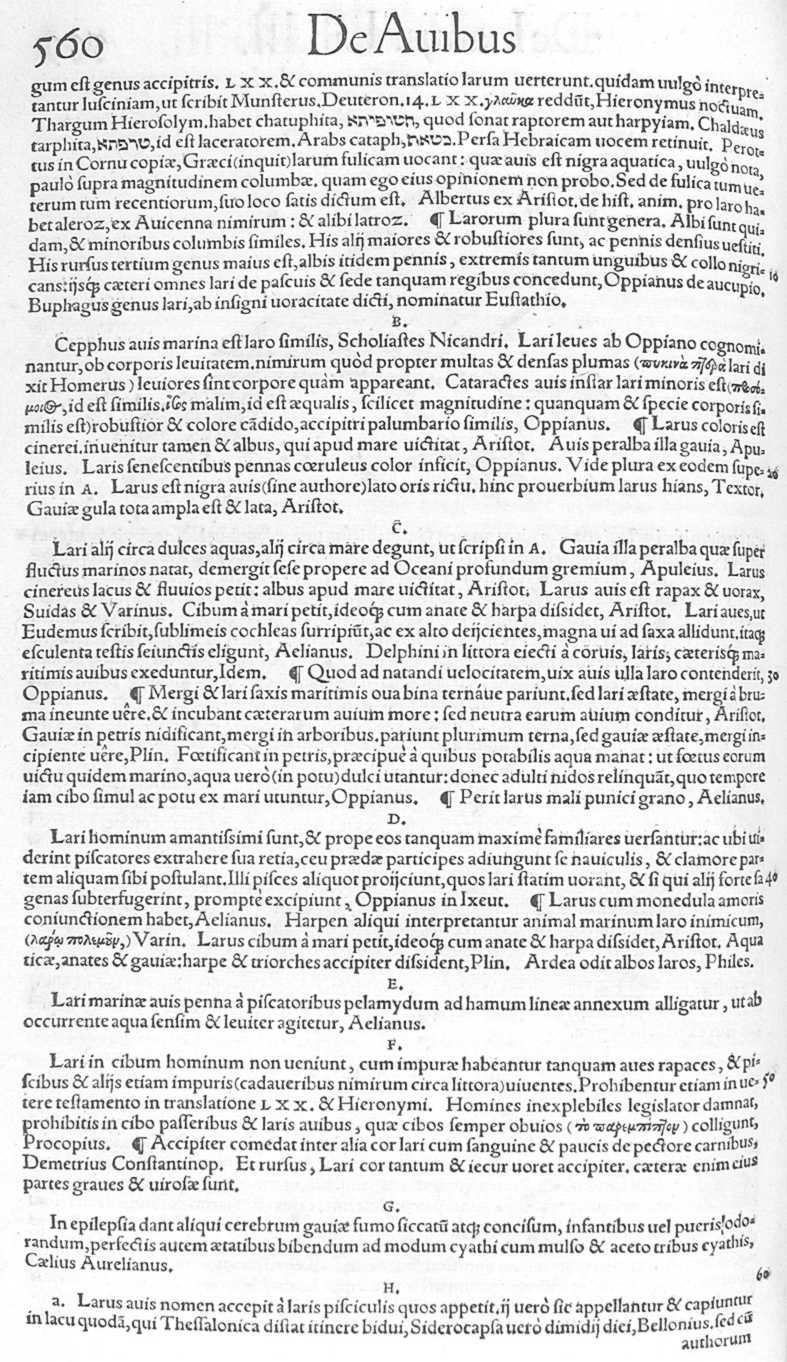 560 De Auibus
gum eſt genus accipitris. L X X. & communis tranſlatio larum uerterunt. quidam uulgò interpre⸗
tantur luſciniam, ut ſcribit Munſterus. Deuteron. 14. L X X. γλαῦκα reddūt, Hieronymus noctuam.
Thargum Hieroſolym. habet chatuphita, חטופיתא, quod ſonat raptorem aut harpyiam. Chaldæus
tarphita, שרפתא, id eſt laceratorem. Arabs cataph, Perſa Hebraicam uocem retinuit. Perot⸗
tus in Cornu copiæ, Græci (inquit) larum fulicam uocant: quæ auis eſt nigra aquatica, uulgò nota,
paulò ſupra magnitudinem columbæ. quam ego eius opinionem non probo. Sed de fulica tum ue⸗
terum tum recentiorum, ſuo loco ſatis dictum eſt. Albertus ex Ariſtot. de hiſt. anim. pro laro ha⸗
bet aleroz, ex Auicenna nimirum: & alibi latroz. ¶ Larorum plura ſunt genera. Albi ſunt qui⸗
dam, & minoribus columbis ſimiles. His alij maiores & robuſtiores ſunt, ac pennis denſius ueſtiti.
His rurſus tertium genus maius eſt, albis itidem pennis, extremis tantum unguibus & collo nigri⸗ 10
cans: ijsqꝫ cæteri omnes lari de paſcuis & ſede tanquam regibus concedunt, Oppianus de aucupio.
Buphagus genus lari, ab inſigni uoracitate dicti, nominatur Euſtathio.
B.
Cepphus auis marina eſt laro ſimilis, Scholiaſtes Nicandri. Lari leues ab Oppiano cognomi⸗
nantur, ob corporis leuitatem. nimirum quòd propter multas & denſas plumas (πυκινὰ πτερὰ lari di
xit Homerus) leuiores ſint corpore quàm appareant. Cataractes auis inſtar lari minoris eſt (παρό⸗
μοιος, id eſt ſimilis. ἶσος malim, id eſt æqualis, ſcilicet magnitudine: quanquam & ſpecie corporis ſi⸗
milis eſt) robuſtior & colore cādido, accipitri palumbario ſimilis, Oppianus. ¶ Larus coloris eſt
cinerei. inuenitur tamen & albus, qui apud mare uictitat, Ariſtot. Auis peralba illa gauia, Apu⸗
leius. Laris ſeneſcentibus pennas cœruleus color inficit, Oppianus. Vide plura ex eodem ſupe⸗ 20
rius in A. Larus eſt nigra auis (ſine authore) lato oris rictu. hinc prouerbium larus hians, Textor.
Gauiæ gula tota ampla eſt & lata, Ariſtot.
C.
Lari alij circa dulces aquas, alij circa mare degunt, ut ſcripſi in A. Gauia illa peralba quæ ſuper
fluctus marinos natat, demergit ſeſe propere ad Oceani profundum gremium, Apuleius. Larus
cinereus lacus & fluuios petit: albus apud mare uictitat, Ariſtot. Larus auis eſt rapax & uorax,
Suidas & Varinus. Cibum à mari petit, ideoqꝫ cum anate & harpa diſsidet, Ariſtot. Lari aues, ut
Eudemus ſcribit, ſublimeis cochleas ſurripiūt, ac ex alto deijcientes, magna ui ad ſaxa allidunt. itaqꝫ
eſculenta teſtis ſeiunctis eligunt, Aelianus. Delphini in littora eiecti à coruis, laris, cæterisqꝫ ma⸗
ritimis auibus exeduntur, Idem. ¶ Quod ad natandi uelocitatem, uix auis ulla laro contenderit, 30
Oppianus. ¶ Mergi & lari ſaxis maritimis oua bina ternáue pariunt. ſed lari æſtate, mergi à bru⸗
ma ineunte uêre. & incubant cæterarum auium more: ſed neutra earum auium conditur, Ariſtot.
Gauiæ in petris nidificant, mergi in arboribus. pariunt plurimum terna, ſed gauiæ æſtate, mergi in⸗
cipiente uêre, Plin. Fœtificant in petris, præcipuè à quibus potabilis aqua manat: ut fœtus eorum
uictu quidem marino, aqua uerò (in potu) dulci utantur: donec adulti nidos relinquāt, quo tempore
iam cibo ſimul ac potu ex mari utuntur, Oppianus. ¶ Perit larus mali punici grano, Aelianus.
D.
Lari hominum amantiſsimi ſunt, & prope eos tanquam maximè familiares uerſantur: ac ubi ui⸗
derint piſcatores extrahere ſua retia, ceu prædæ participes adiungunt ſe nauiculis, & clamore par⸗
tem aliquam ſibi poſtulant. Illi piſces aliquot proijciunt, quos lari ſtatim uorant, & ſi qui alij forte ſa 40
genas ſubterfugerint, promptè excipiunt, Oppianus in Ixeut. ¶ Larus cum monedula amoris
coniunctionem habet, Aelianus. Harpen aliqui interpretantur animal marinum laro inimicum,
(λαρῳ πολεμοῦν,) Varin. Larus cibum à mari petit, ideoqꝫ cum anate & harpa diſsidet, Ariſtot. Aqua
ticæ, anates & gauiæ: harpe & triorches accipiter diſsident, Plin. Ardea odit albos laros, Philes.
E.
Lari marinæ auis penna à piſcatoribus pelamydum ad hamum lineæ annexum alligatur, ut ab
occurrente aqua ſenſim & leuiter agitetur, Aelianus.
F.
Lari in cibum hominum non ueniunt, cum impuræ habeantur tanquam aues rapaces, & pi⸗
ſcibus & alijs etiam impuris (cadaueribus nimirum circa littora) uiuentes. Prohibentur etiam in ue⸗ 50
tere teſtamento in tranſlatione L X X. & Hieronymi. Homines inexplebiles legislator damnat,
prohibitis in cibo paſſeribus & laris auibus, quæ cibos ſemper obuios (τὸ παρεμπῖπτον) colligunt,
Procopius. ¶ Accipiter comedat inter alia cor lari cum ſanguine & paucis de pectore carnibus,
Demetrius Conſtantinop. Et rurſus, Lari cor tantum & iecur uoret accipiter. cæteræ enim eius
partes graues & uiroſæ ſunt.
G.
In epilepſia dant aliqui cerebrum gauiæ fumo ſiccatū atqꝫ conciſum, infantibus uel pueris, odo⸗
randum, perfectis autem ætatibus bibendum ad modum cyathi cum mulſo & aceto tribus cyathis,
Cælius Aurelianus.
H. 60
a. Larus auis nomen accepit à laris piſciculis quos appetit. ij uerò ſic appellantur & capiuntur
in lacu quodā, qui Theſſalonica diſtat itinere bidui, Siderocapſa uerò dimidij diei, Bellonius. ſed cū
authorum